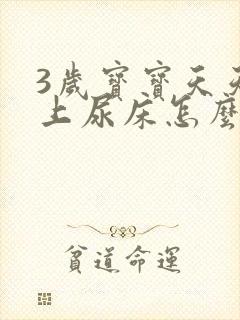 3歲寶寶天天
上尿床怎麼
貧道命運